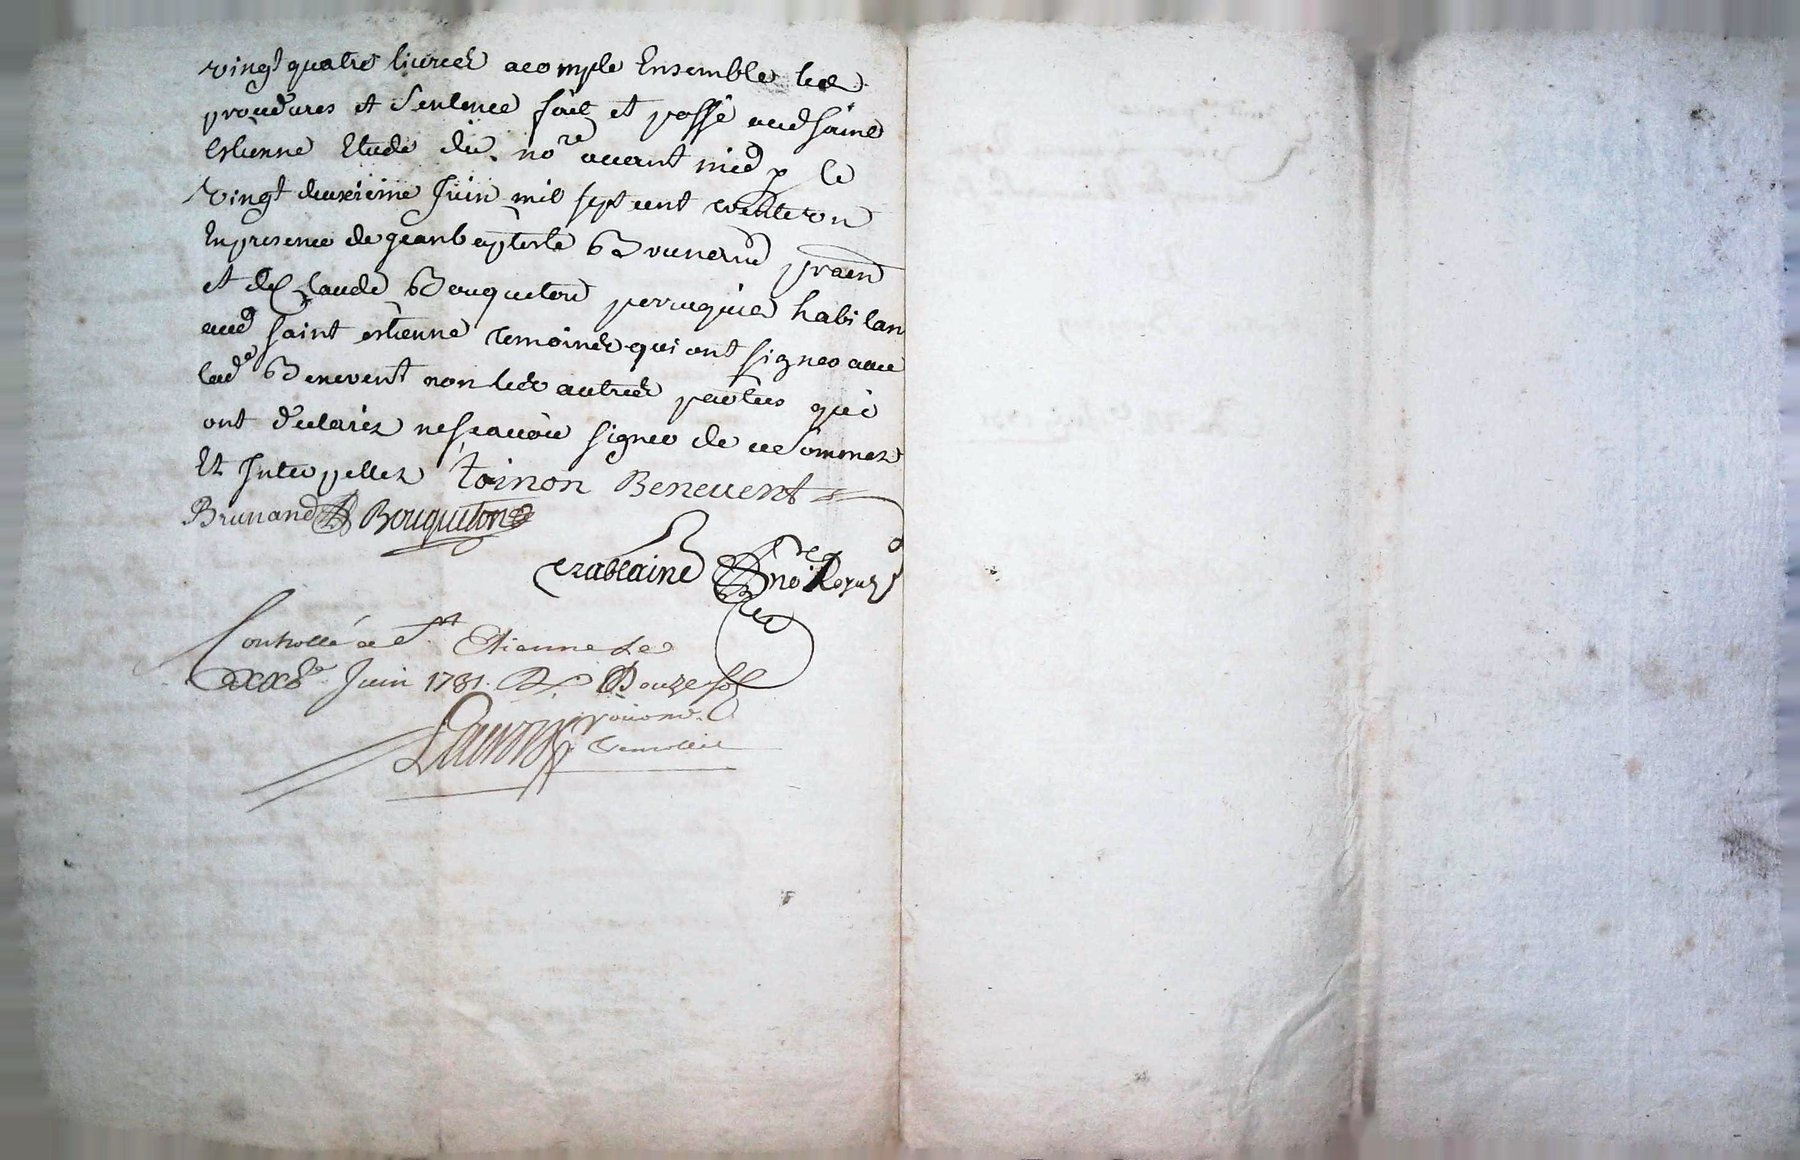 vingt quatre livres acompte Ensemble les
procedures et Sentence fait et passé aud saint
estienne Etude du no.re avant midy le
vingt deuxieme Juin mil sept cent trente un
En presence de jeanbaptiste Brunand praen
et de Claude Bouqueton perruquier habitan
aud saint estienne temoins qui ont signes avec
lad.e Benevent non les autres parties qui
ont déclarés nesçavoir signer de ce Sommez
Et Interpellez toinon Benevent
Brunand Bouqueton
crablaine no.re Royal
Controllé a St Etienne Le
Juin 1731. R. Douze sols